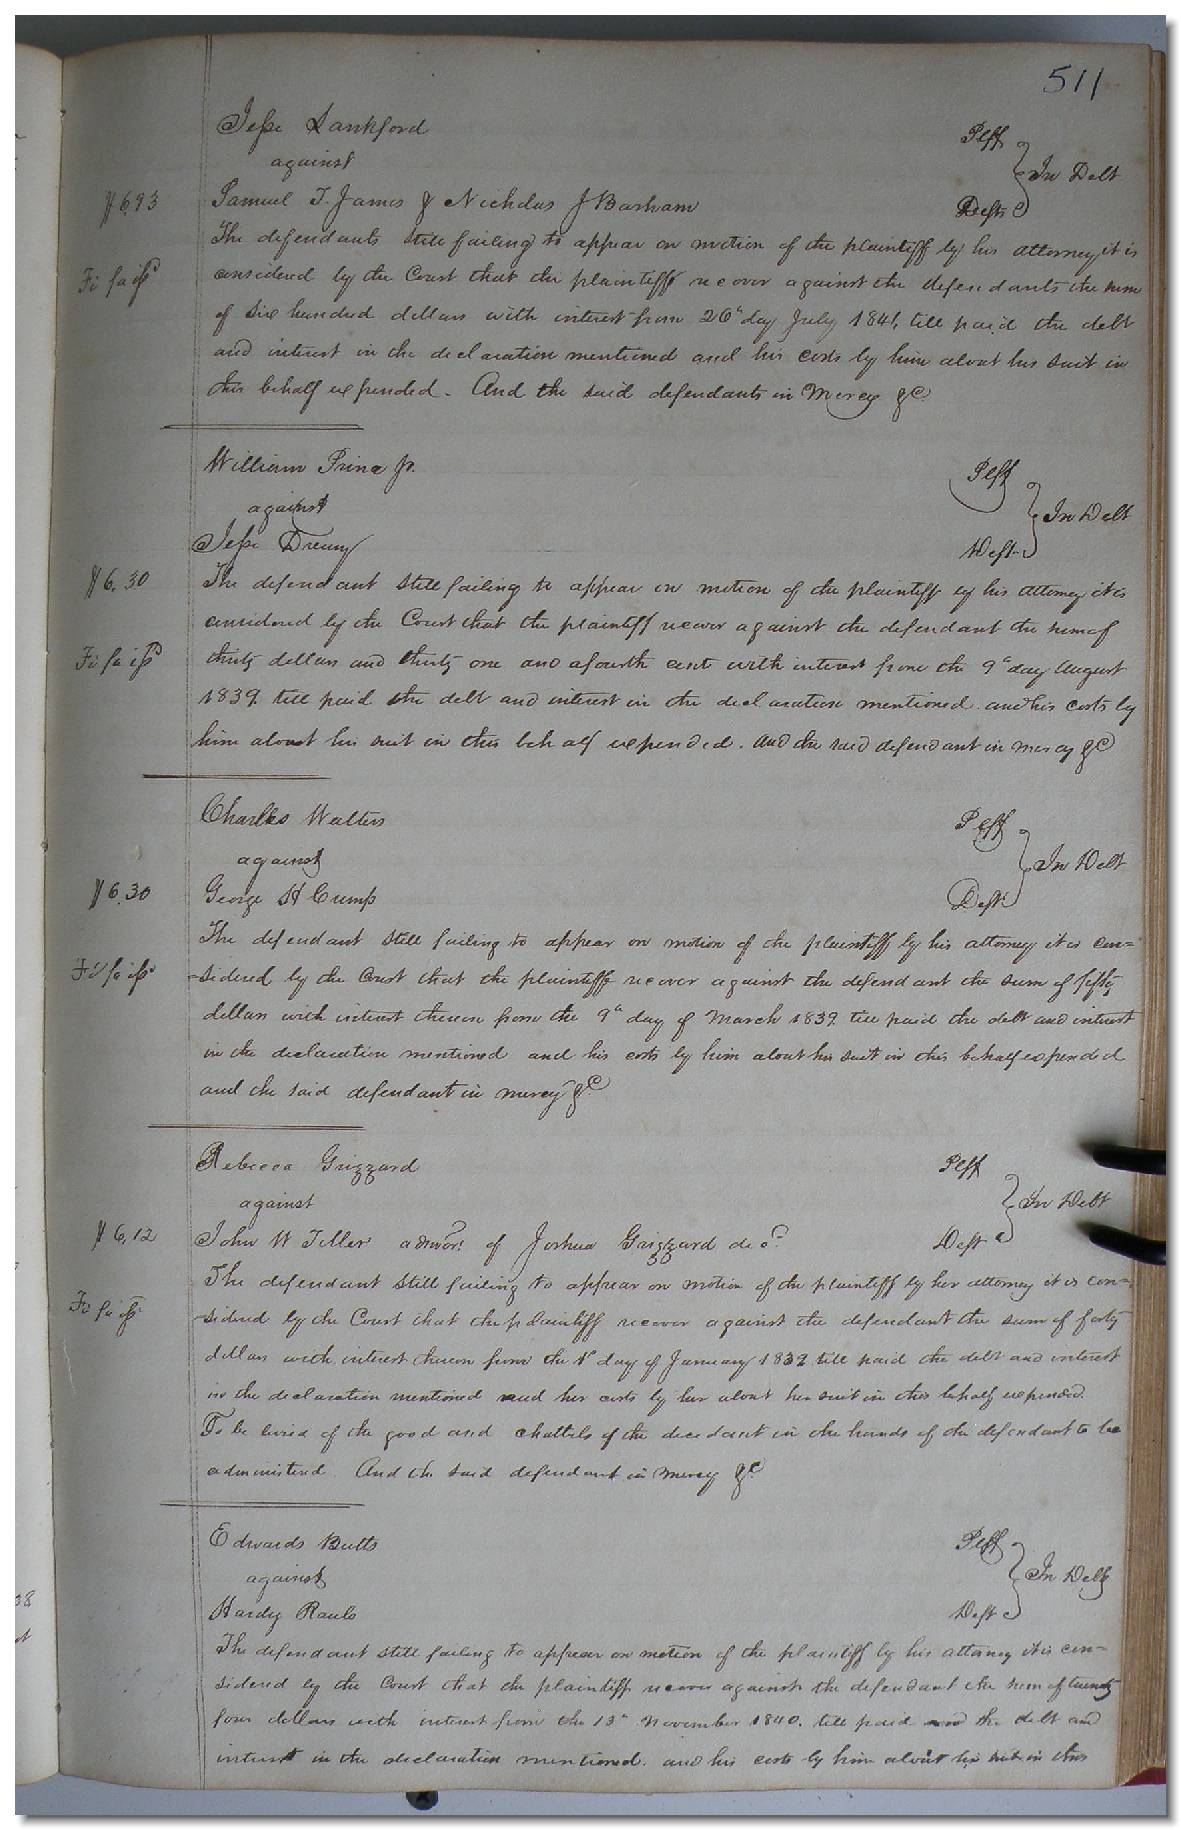 511
Jesse Lankford Plff
against In Debt
$6.93 Samuel T. James & Nicholas J Barham Defts
The defendants still failing to appear on motion of the plaintiff by his attorney it is
Fi fa issd considered by the Court that the plaintiff recover against the defendants the sum
of six hundred dollars with interest from 26th day July 1841, till paid the debt
and interest in the declaration mentioned and his costs by him about his suit in
this behalf expended. And the said defendants in Mercy &C
William Prince Jr. Plff
against In Debt
Jesse Drewry Deft
$6.30 The defendant still failing to appear on motion of the plaintiff by his attorney it is
considered by the Court that the plaintiff recover against the defendant the sum of
Fi fa issd thirty dollars and thirty one and a fourth cent with interest from the 9th day August
1839. till paid the debt and interest in the declaration mentioned and his costs by
him about his suit in this behalf expended. And the said defendant in mercy &C
Charles Walters Plff
against In Debt
$6.30 George H Cump Deft
The defendant still failing to appear on motion of the plaintiff by his attorney it is con=
Fi fa iss -sidered by the Court that the plaintiff recover against the defendant the sum of fifty
dollars with interest thereon from the 9th day of March 1839 till paid the debt and interest
in the declaration mentioned and his costs by him about his suit in this behalf expended
and the said defendant in mercy &C
Rebecca Grizzard Plff
against In Debt
$6.12 John W Teller admor. of Joshua Grizzard decd. Deft
The defendant still failing to appear on motion of the plaintiff by her attorney it is con=
Fi fa iss -sidered by the Court that the plaintiff recover against the defendant the sum of forty
dollars with interest thereon from the 1st day of January 1839 till paid the debt and interest
in the declaration mentioned and her costs by her about her suit in this behalf expended.
To be levied of the good and chattels of the decedant in the hands of the defendant to be
administered. And the said defendant in mercy &C
Edwards Butts Plff
against In Debt
Hardy Rauls Deft
The defendant still failing to appear on motion of the plaintiff by his attorney it is con=
sidered by the Court that the plaintiff recover against the defendant the sum of twenty
four dollars with interest from the 13th November 1840. till paid the debt and
interest in the declaration mentioned. and his costs by him about his suit in this